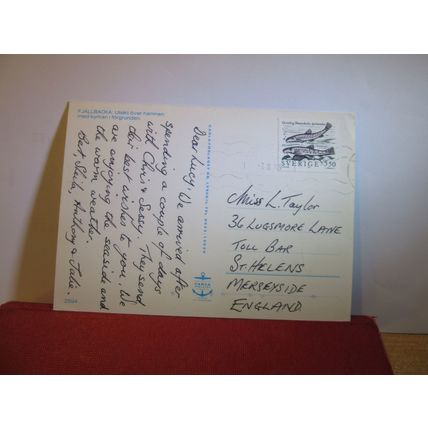 FJÄLLBACKA. Utsikt över hamnen
med kyrkan i förgrunden
Dear Lucy. We arrived after
spending a couple of days
with Chris & Jessy. They send
their best wishes to you. We
are enjoying the seaside and
the warm weather.
Best, Sheila, Anthony & Julie.
2594
SVERIGE 3.50
Miss L. Taylor
36 LUGSMORE LANE
TOLL BAR
ST. HELENS
MERSEYSIDE
ENGLAND